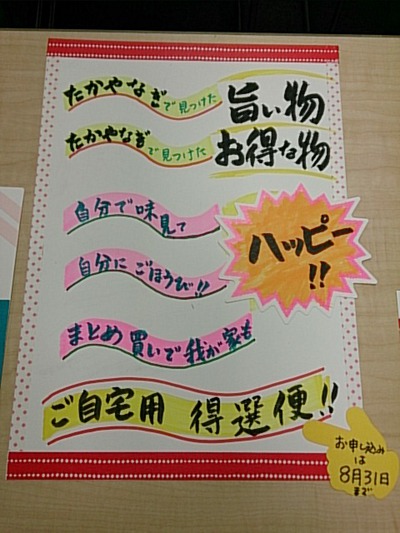 たかやなぎで見つけた 旨い物
たかやなぎで見つけた お得な物
自分で味見て
自分に ごほうび!!
ハッピー!!
まとめ買いで我が家も
ご自宅用 得選便!!
お申し込み
は
8月31日
まで